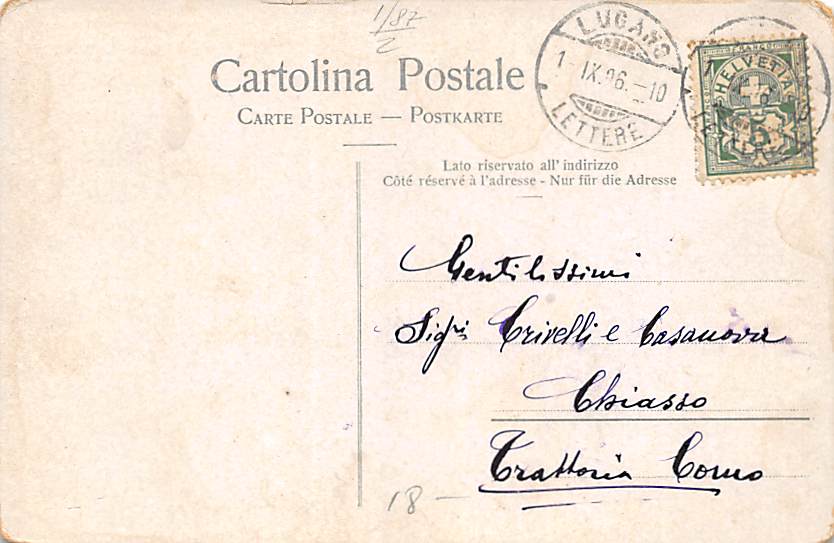 1/87
2
Cartolina Postale
CARTE POSTALE — POSTKARTE
LUGANO
1-IX.06.-10
LETTERE
FRANCO
HELVETIA
5
Lato riservato all' indirizzo
Côté réservé à l'adresse - Nur für die Adresse
Gentilissimi
Sigri Crivelli e Casanova
Chiasso
Trattoria Como
18 -